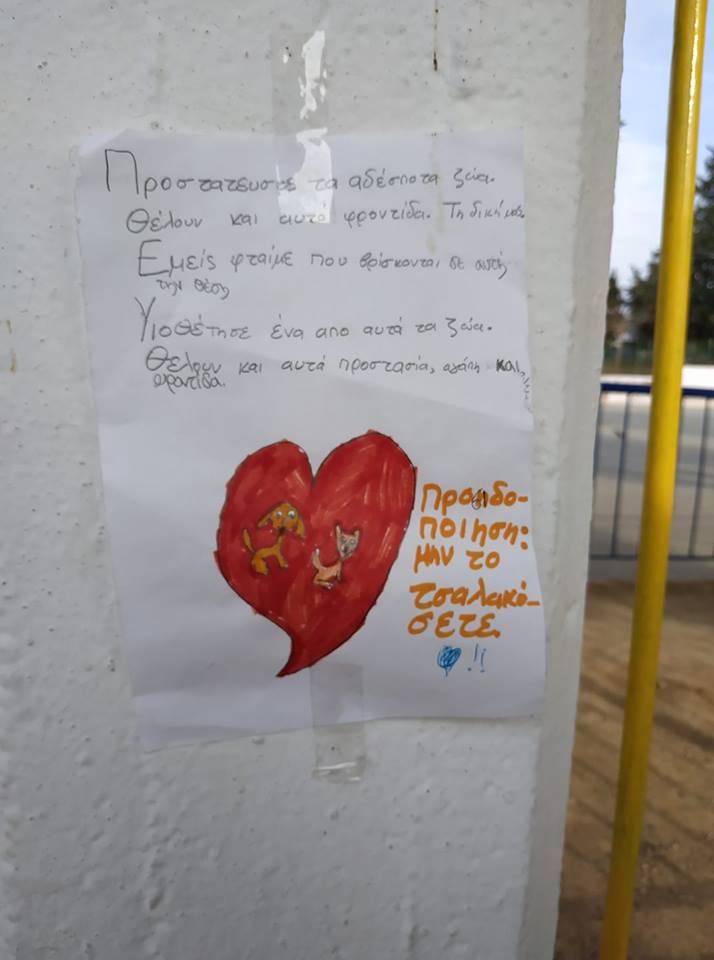 Προστατευστε τα αδέσποτα ζώα.
Θέλουν και αυτά φροντίδα. Τη δική μας
Εμείς φταίμε που βρίσκονται σε αυτή
την θέση
Υιοθέτησε ένα απο αυτά τα ζώα.
Θέλουν και αυτά προστασία, αγάπη και
φροντίδα.
Προειδο-
ποιηση:
μην το
τσαλακό-
σετε.
!!